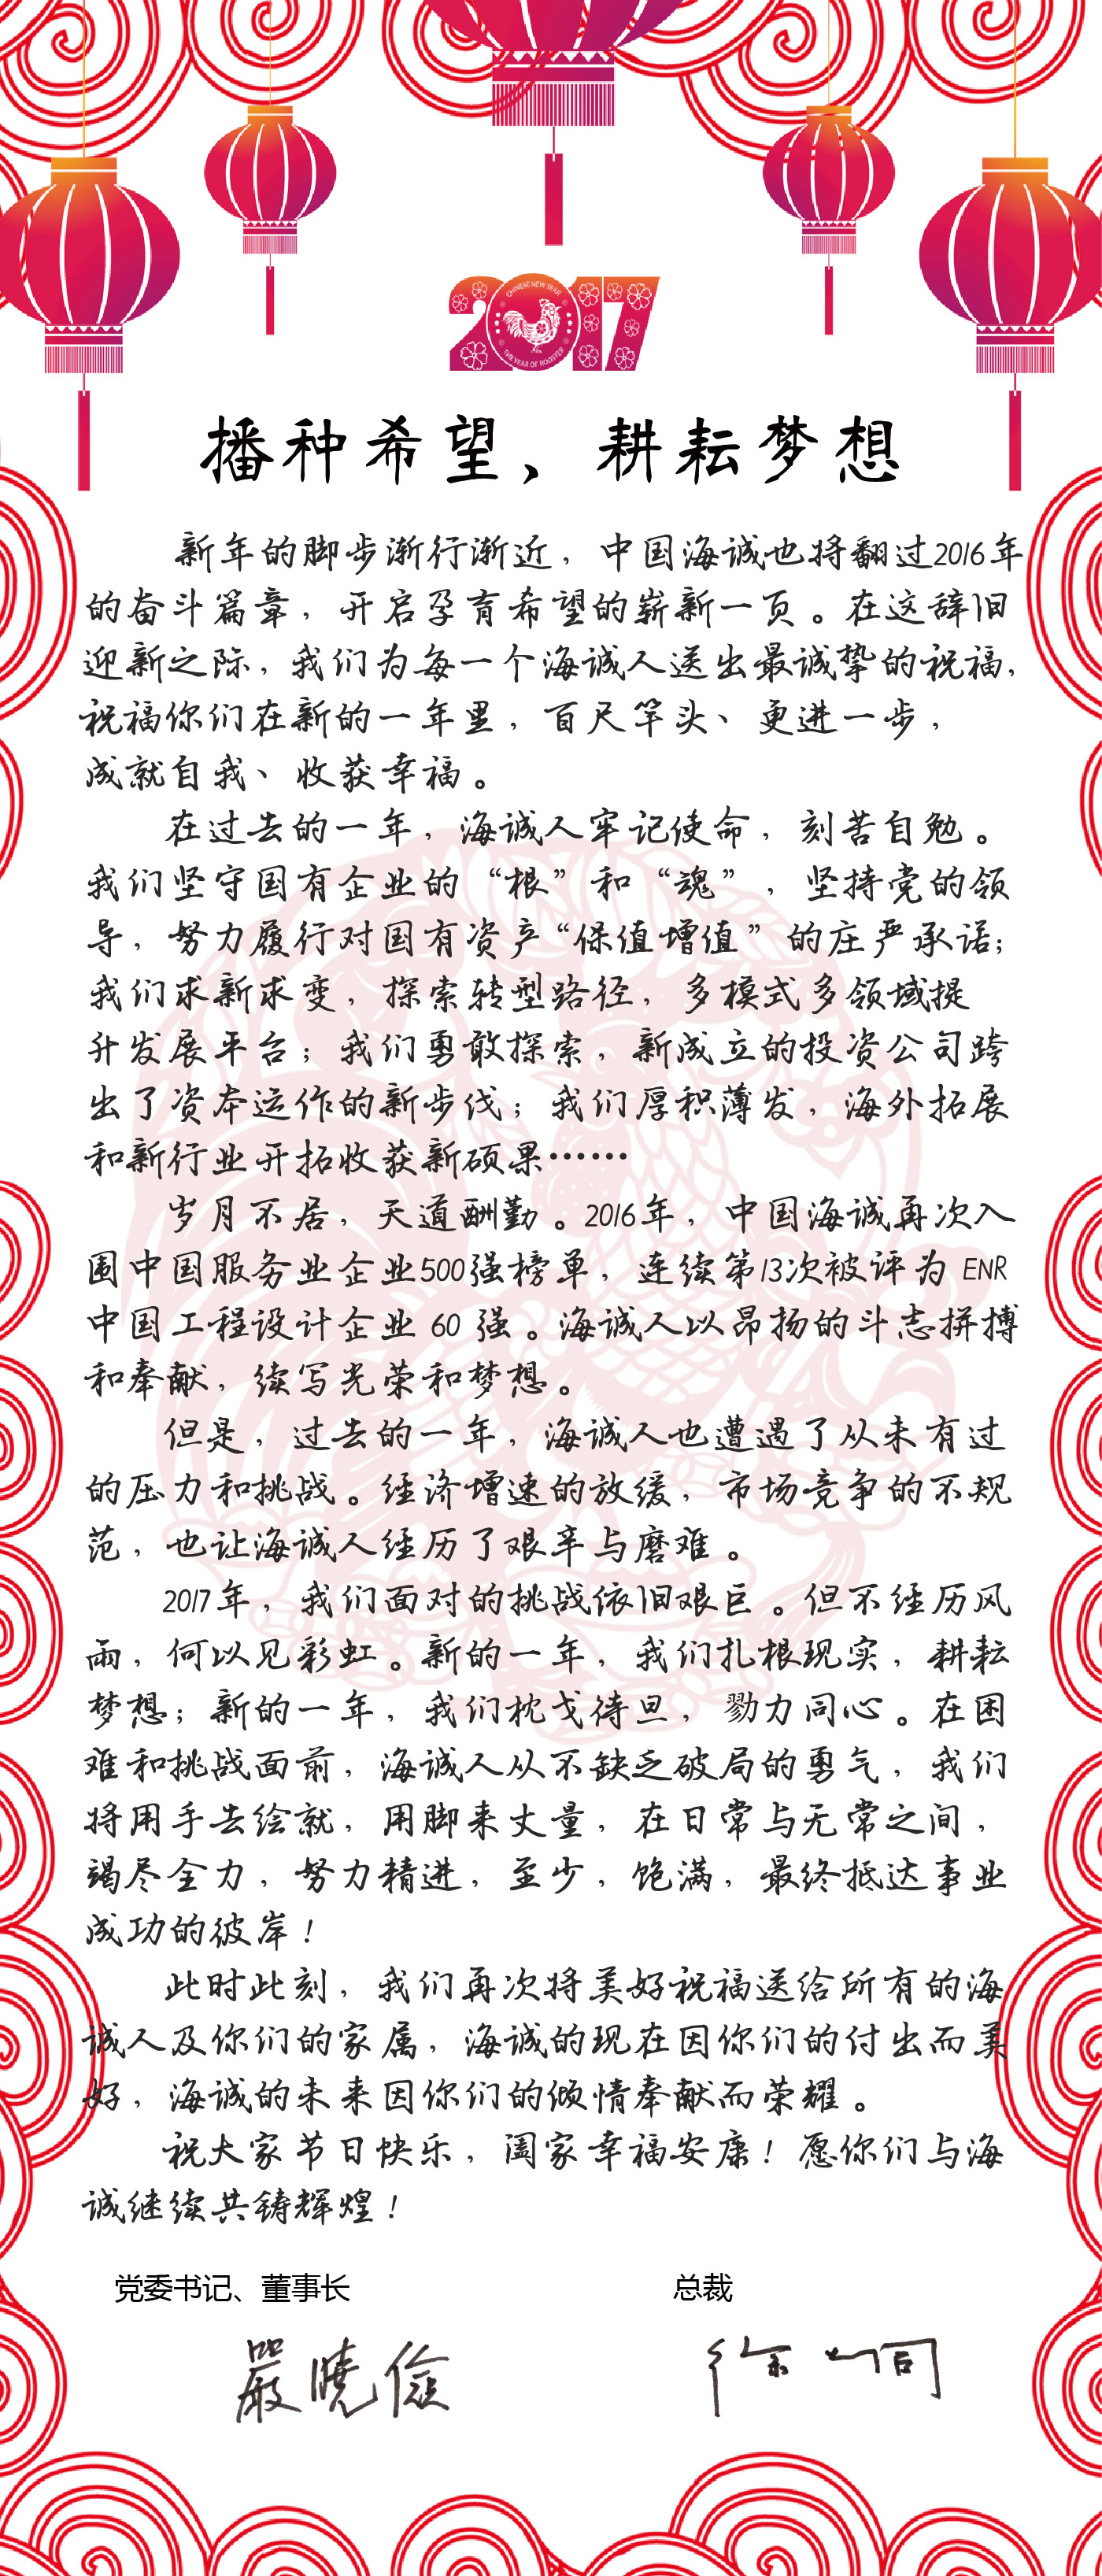 2017
CHINESE NEW YEAR
THE YEAR OF ROOSTER
播种希望、耕耘梦想
新年的脚步渐行渐近，中国海诚也将翻过2016年
的奋斗篇章，开启孕育希望的崭新一页。在这辞旧
迎新之际，我们为每一个海诚人送出最诚挚的祝福，
祝福你们在新的一年里，百尺竿头、更进一步，
成就自我、收获幸福。
在过去的一年，海诚人牢记使命，刻苦自勉。
我们坚守国有企业的“根”和“魂”，坚持党的领
导，努力履行对国有资产“保值增值”的庄严承诺；
我们求新求变，探索转型路径，多模式多领域提
升发展平台；我们勇敢探索，新成立的投资公司跨
出了资本运作的新步伐；我们厚积薄发，海外拓展
和新行业开拓收获新硕果……
岁月不居，天道酬勤。2016年，中国海诚再次入
围中国服务业企业500强榜单，连续第13次被评为 ENR
中国工程设计企业 60 强。海诚人以昂扬的斗志拼搏
和奉献，续写光荣和梦想。
但是，过去的一年，海诚人也遭遇了从未有过
的压力和挑战。经济增速的放缓，市场竞争的不规
范，也让海诚人经历了艰辛与磨难。
2017年，我们面对的挑战依旧艰巨。但不经历风
雨，何以见彩虹。新的一年，我们扎根现实，耕耘
梦想；新的一年，我们枕戈待旦，勠力同心。在困
难和挑战面前，海诚人从不缺乏破局的勇气，我们
将用手去绘就，用脚来丈量，在日常与无常之间，
竭尽全力，努力精进，至少，饱满，最终抵达事业
成功的彼岸！
此时此刻，我们再次将美好祝福送给所有的海
诚人及你们的家属，海诚的现在因你们的付出而美
好，海诚的未来因你们的倾情奉献而荣耀。
祝大家节日快乐，阖家幸福安康！愿你们与海
诚继续共铸辉煌！
党委书记、董事长
总裁
嚴曉儉